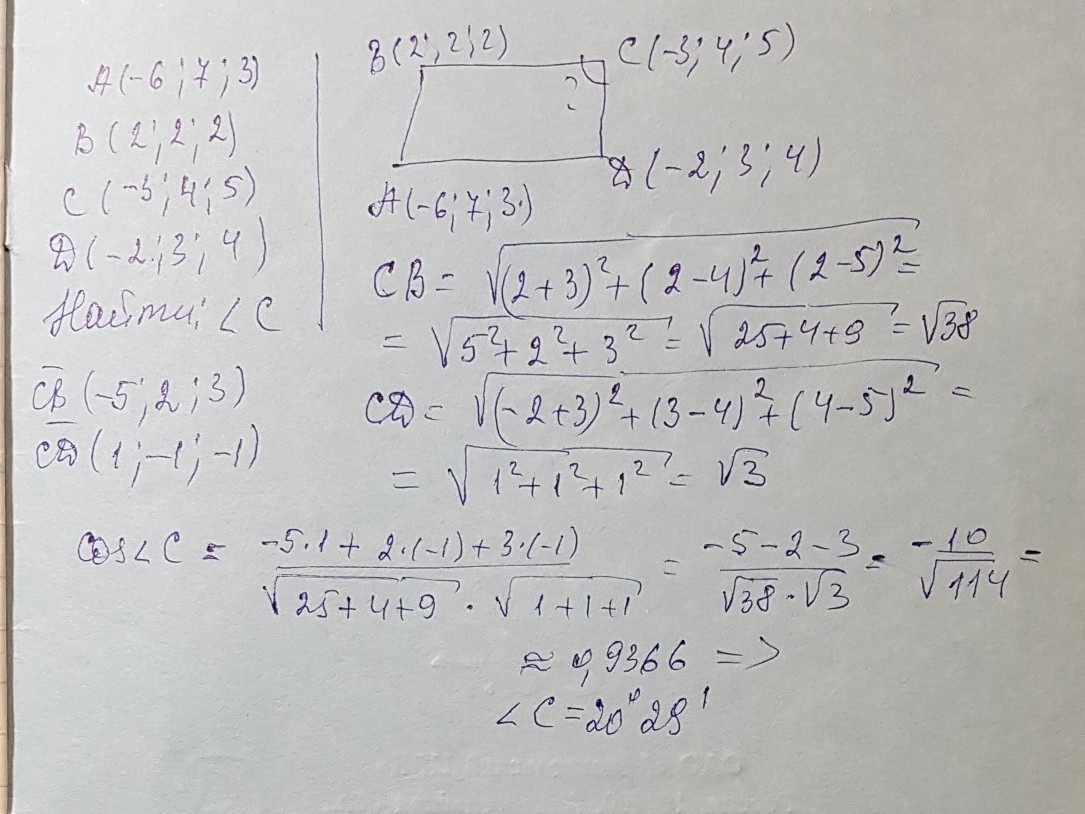 A(-6; 7; 3)
B(2; 2; 2)
C(-3; 4; 5)
D(-2; 3; 4)
Найти: ∠C
B(2; 2; 2)
C(-3; 4; 5)
?
A(-6; 7; 3)
D(-2; 3; 4)
CB = √(2+3)²+(2-4)²+(2-5)² =
= √5²+2²+3² = √25+4+9 = √38
CD = √(-2+3)²+(3-4)²+(4-5)² =
= √1²+1²+1² = √3
CB(-5; 2; 3)
CD(1; -1; -1)
cos∠C = -5·1 + 2·(-1) + 3·(-1) / √25+4+9 · √1+1+1 = -5-2-3 / √38·√3 = -10 / √114 =
≈ 0,9366 =>
∠C = 20°29'